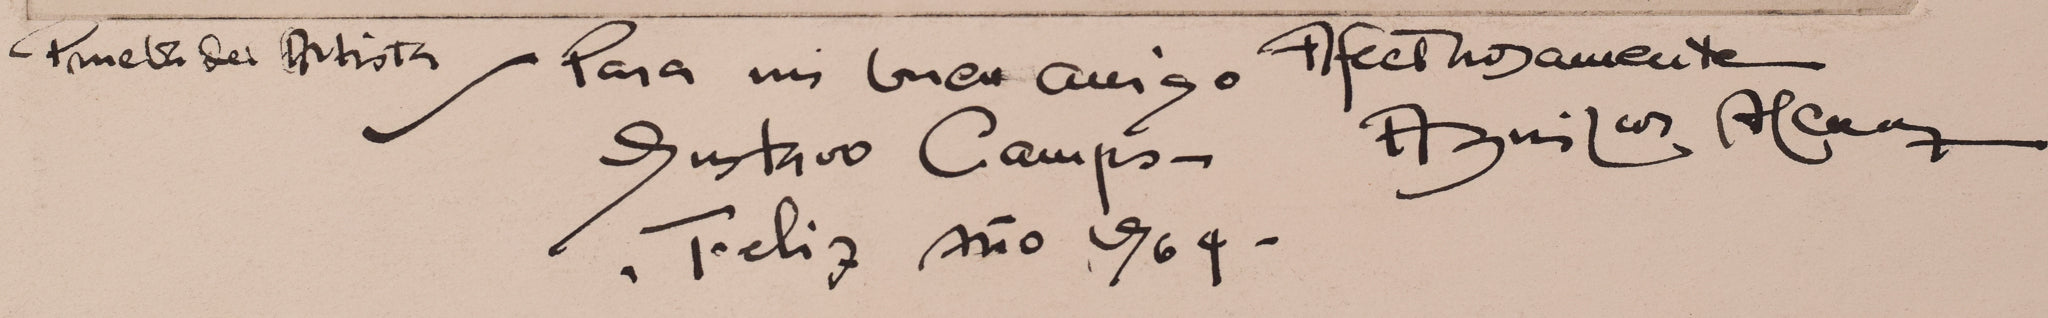 Prueba de Artista
Para mi buen amigo
Gustavo Camps
Feliz Año 1964-
Afectuosamente
Aguilar Alcuaz